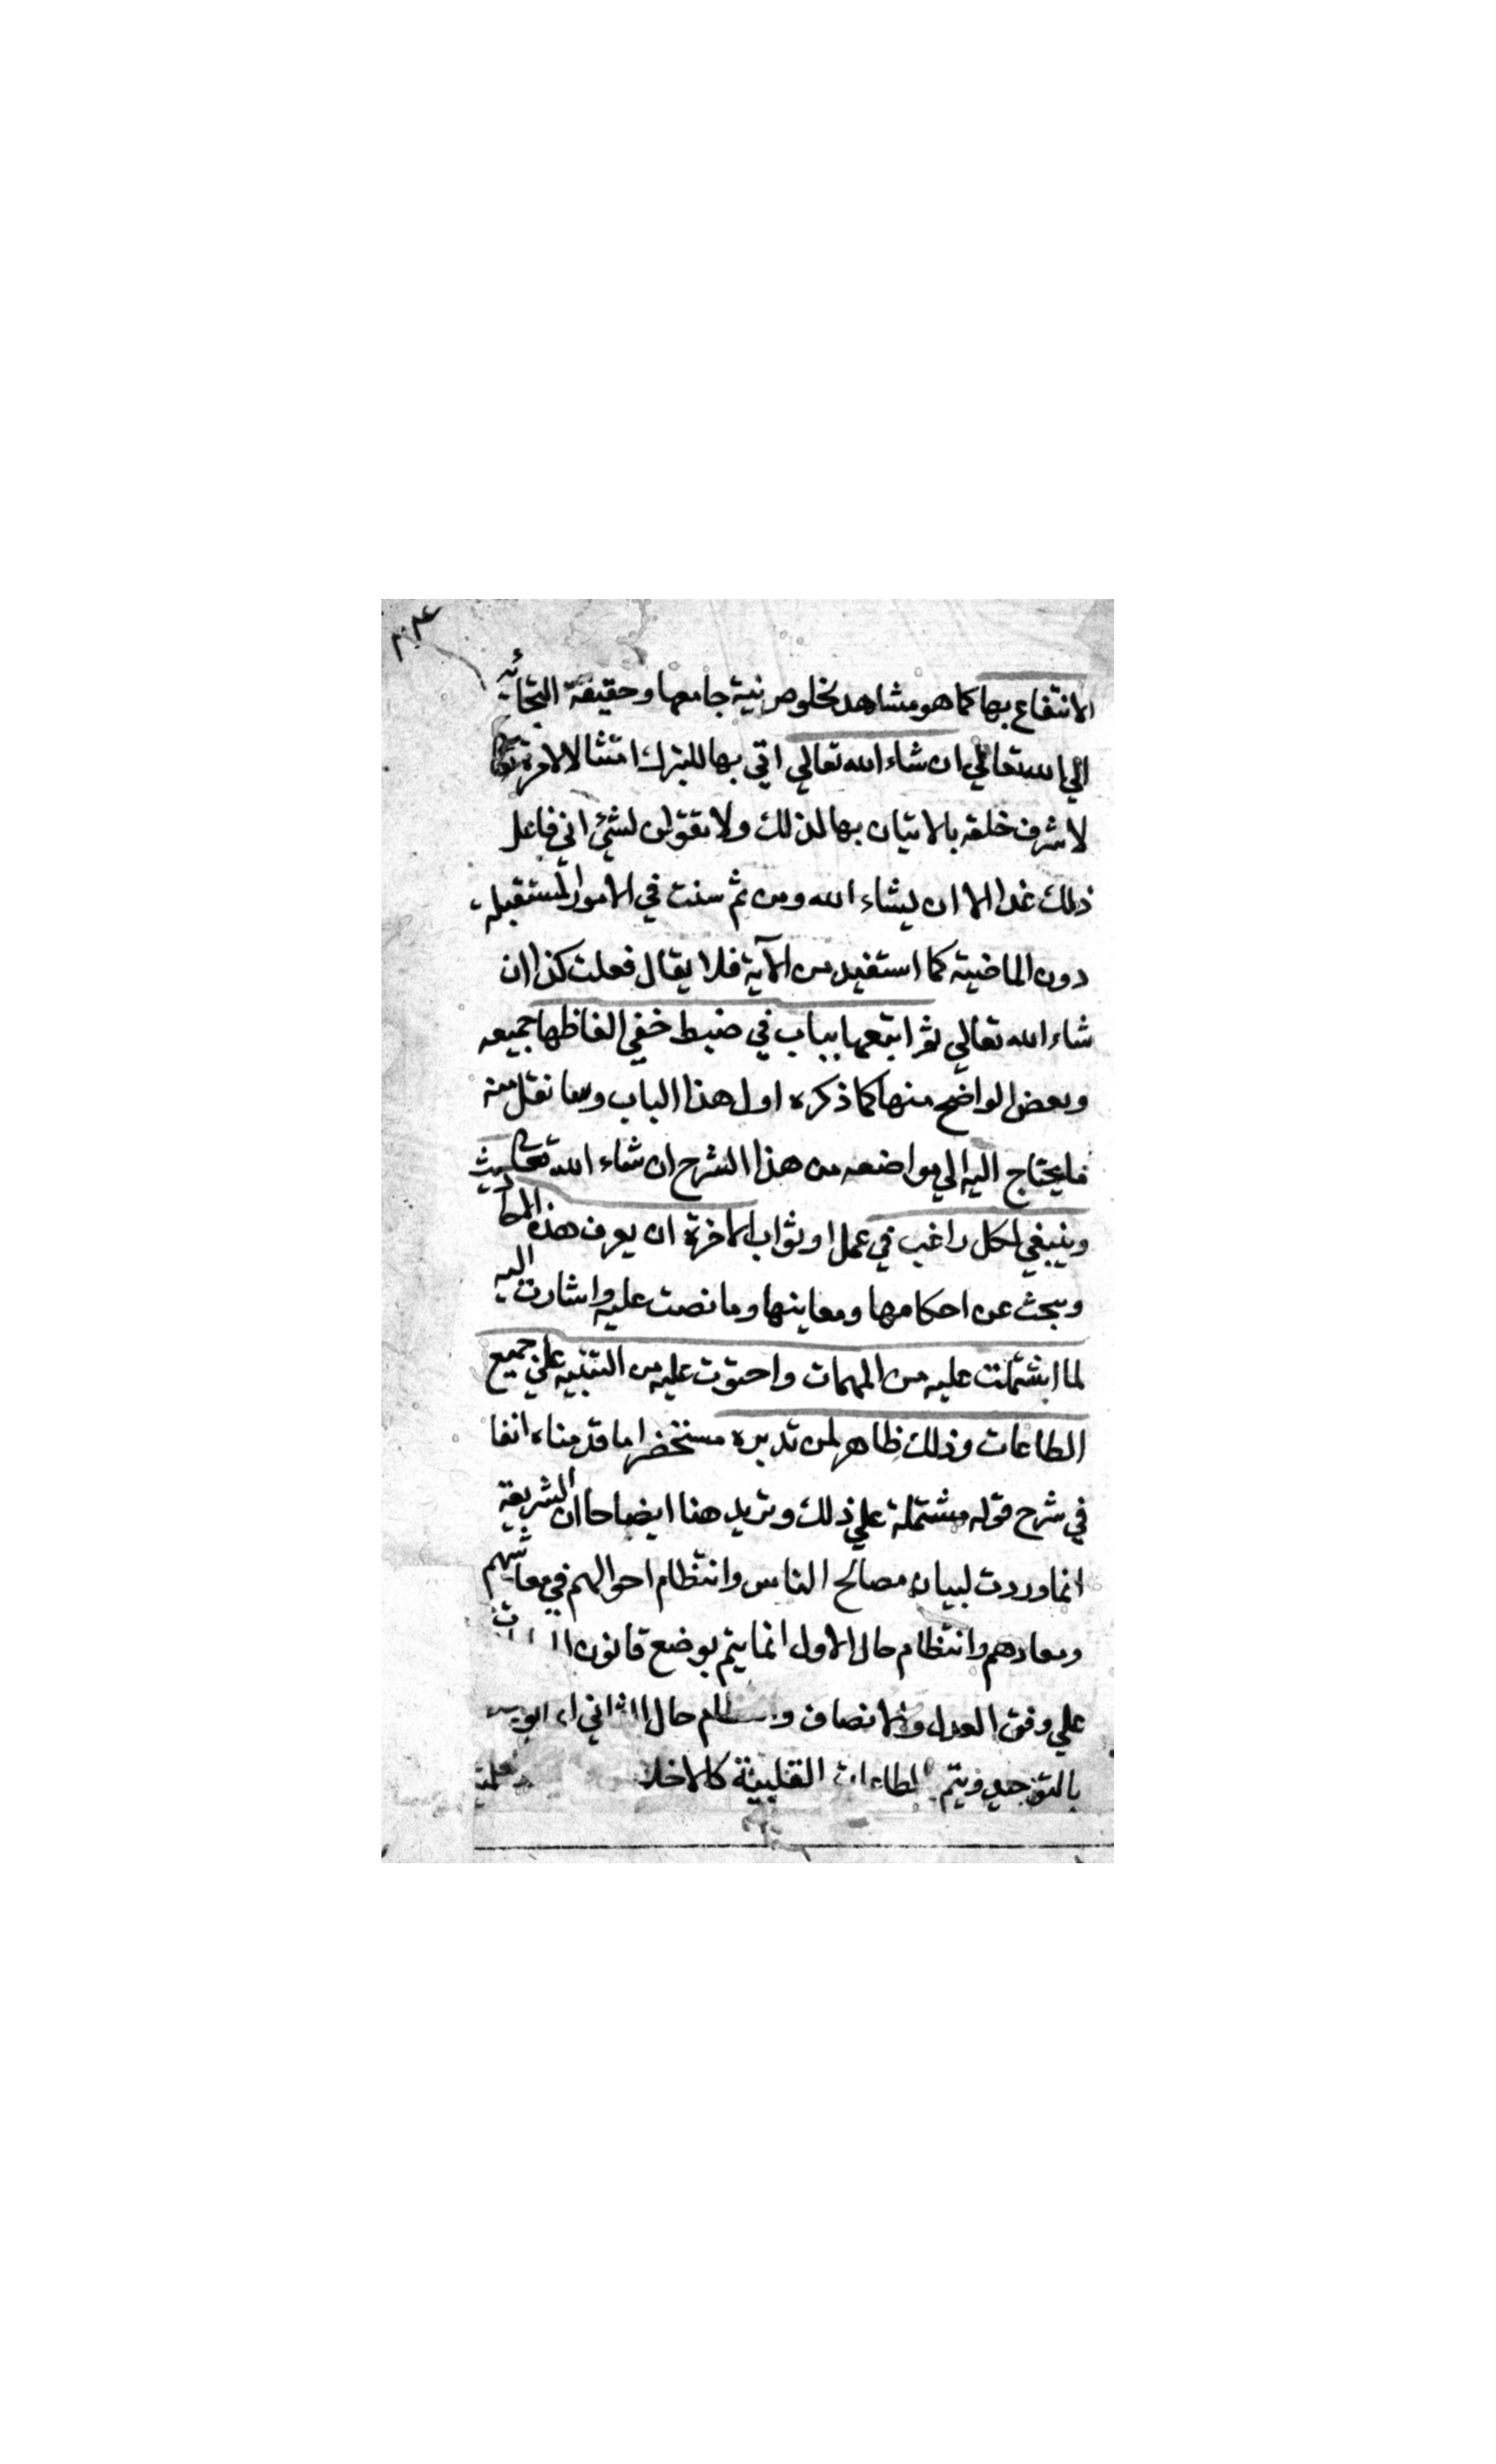 الانتفاع بها كما هو مشاهد لخلوص نية جامعها وحقيقة التجائه
الي الله تعالي ان شاء الله تعالي اتي بها للتبرك امتثالا لامره تعالى
لاشرف خلقه بالاتيان بها لذلك ولا تقولن لشئ اني فاعل
ذلك غدا الا ان يشاء الله ومن ثم سنت في الامور المستقبله
دون الماضية كما استفيد من الآية فلا يقال فعلت كذا ان
شاء الله تعالي ثم اتبعها بباب في ضبط خفي الفاظها جميعه
وبعض الواضح منها كما ذكره اول هذا الباب وسانقل منه
مايحتاج اليه الي مواضعه من هذا الشرح ان شاء الله تعالى
وينبغي لكل راغب في عمل او ثواب الاخرة ان يعرف هذه الاحاديث
ويبحث عن احكامها ومعاينها وما نصت عليه واشارت اليه
لما اشتملت عليه من المهمات واحتوت عليه من التنبيه علي جميع
الطاعات وذلك ظاهر لمن تدبره مستحضرا ما قدمناه انفا
في شرح قوله مشتملة علي ذلك ونزيد هنا ايضاحا ان الشريعة
انما وردت لبيان مصالح الناس وانتظام احوالهم في معاشهم
ومعادهم وانتظام حال الاول انما يتم بوضع قانون
علي وفق العدل والانصاف وانتظام حال الثاني
بالتوحيد ويتم بالطاعات القلبية كالاخلاص